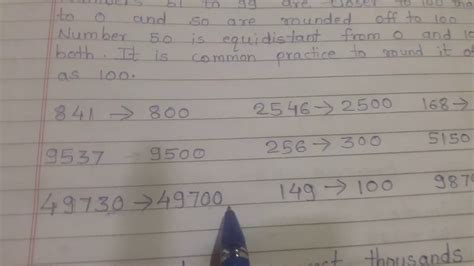 51 to 99 are closer to 100
to 0 and so are rounded off to 100
Number 50 is equidistant from 0 and
both. It is common practice to round it
as 100.
841 → 800 2546 → 2500 168 →
9537 9500 256 → 300 5150
49730 → 49700 149 → 100 987
thousands